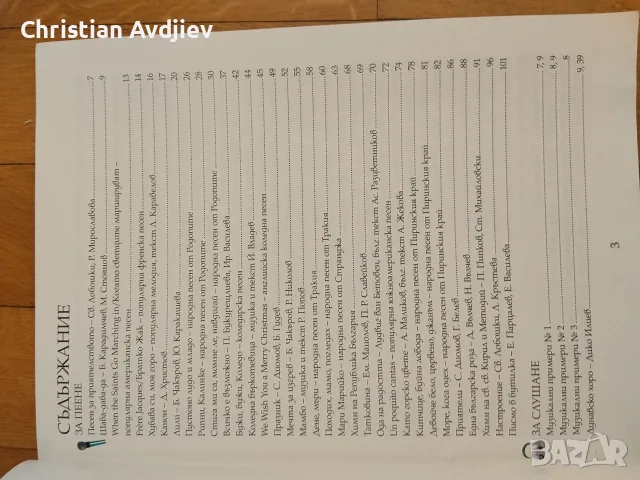 Christian Avdjiev
СЪДЪРЖАНИЕ
ЗА ПЕЕНЕ
Песен за приятелството – Св. Лобошки, Р. Мирославова 7
Шабе-даба-да – Б. Карадимчев, М. Стоянов 9
When the Saints Go Marching in/Когато светците маршируват –
популярна американска песен 13
Frère Jacques/Братко Жак – популярна френска песен 14
Хубава си, моя горо – популярна мелодия, текст Л. Каравелов 16
Канон – Д. Христов 17
Лили – Б. Чакъров, Ю. Каракашева 20
Пустоно лудо и младо – народна песен от Родопите 26
Рипни, Калинке – народна песен от Родопите 28
Стига ми са, момне ле, набдигай – народна песен от Родопите 30
Всичко е възможно – П. Букурещлиева, Ир. Василева 37
Бужи, бръжи, Коледо – коледарска песен 42
Коледна бъркотевица – музика и текст Й. Владев 44
We Wish You a Merry Christmas – английска коледна песен 45
Празник – С. Диомов, Б. Гудев 49
Мечта за изгрев – Б. Чакъров, Р. Николов 52
Мамбо – музика и текст Р. Попов 55
Дене, мори – народна песен от Тракия 58
Походих, мамо, погледах – народна песен от Тракия 60
Мари Марийко – народна песен от Странджа 63
Химн на Република България 68
Татковина – Ем. Манолов, П. Р. Славейков 69
Ода на радостта – Лудвиг ван Бетовен, бълг. текст Ас. Разцветников 70
Un poquito cantas – популярна южноамериканска песен 72
Като горски цвете – А. Маликов, бълг. текст А. Жекова 74
Китчице, бяла лобода – народна песен от Пиринския край 78
Девойче бело, цървено, джанъм – народна песен от Пиринския край 81
Море, кога одех – народна песен от Пиринския край 82
Приятели – С. Диомов, Г. Белев 86
Една българска роза – Д. Вълчев, Н. Вълчев 88
Химн на св. св. Кирил и Методий – П. Пипков, Ст. Михайловски 91
Настроение – Св. Лобошки, Л. Кръстева 96
Писмо в бутилка – Е. Парцалев, Е. Василева 101
ЗА СЛУШАНЕ
Музикални примери № 1 7, 9
Музикални примери № 2 8, 9
Музикални примери № 3 8
Дунавско хоро – Дико Илиев 9, 39
3
bazar.bg